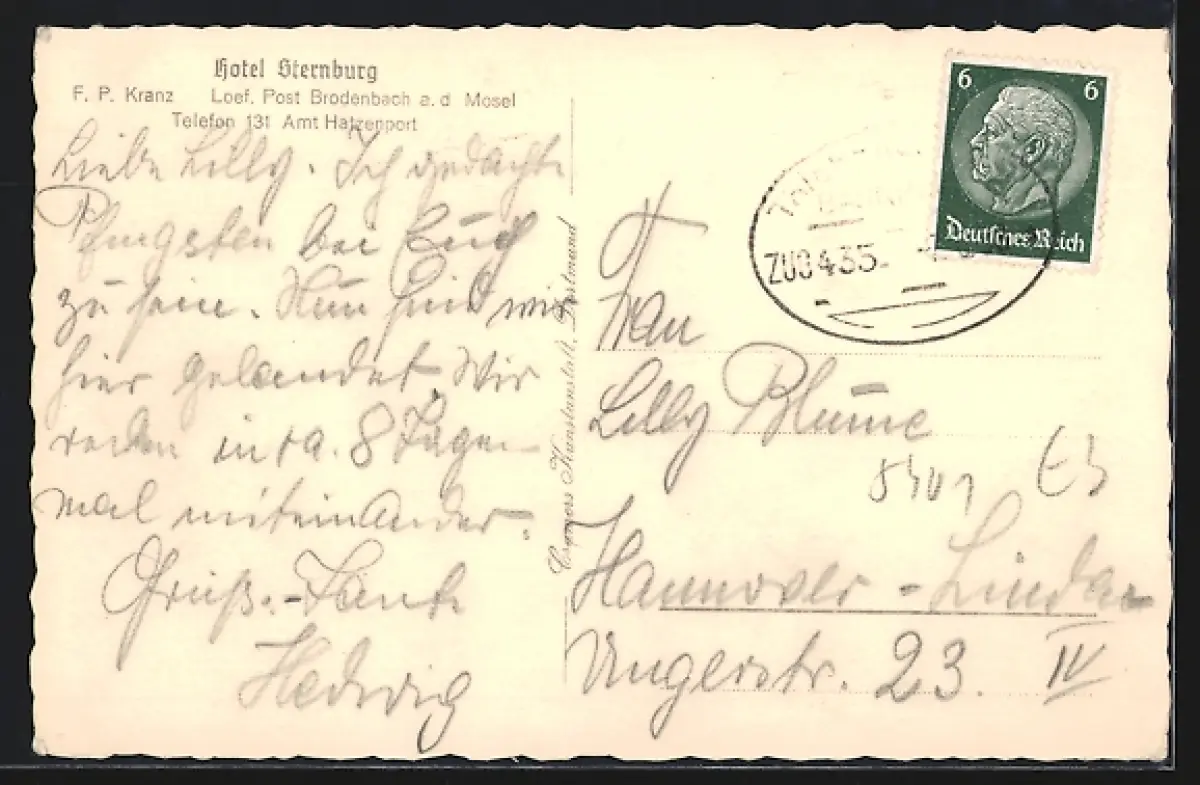 Hotel Sternburg
F. P. Kranz Loef. Post Brodenbach a. d Mosel
Telefon 131 Amt Hatzenport
Liebe Lilly. Ich gedachte
Pfingsten bei Euch
zu sein. Nun sind wir
hier gelandet. Wir
reden in 8 Tagen
mal miteinander.
Gruß.-Tante
Hedwig
Cramers Kunstanstalt, Dortmund
6 6
Deutsches Reich
ZUG 435
Frau
Lilly Blume
Hannover - Linden
Ungerstr. 23. IV